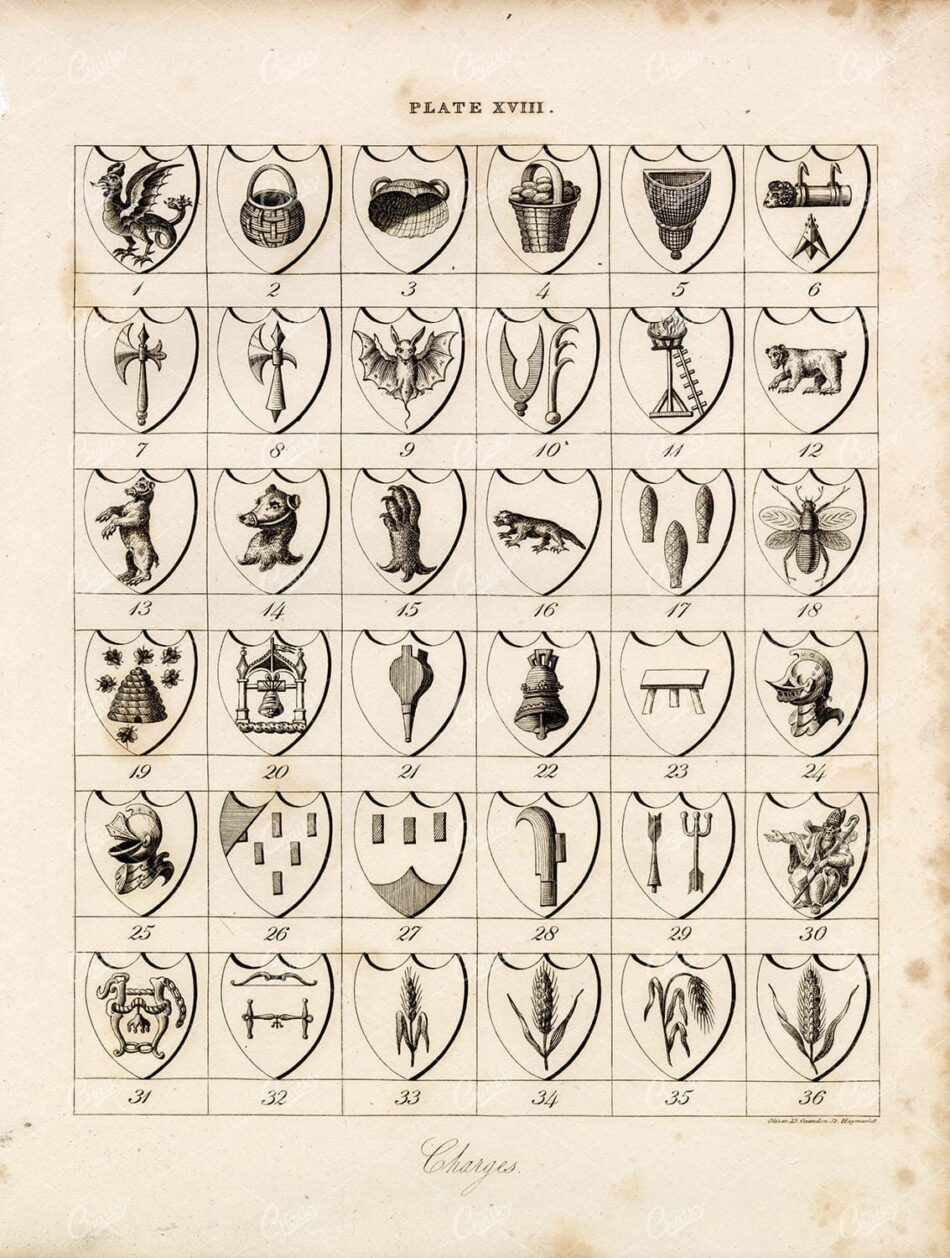 PLATE XVIII.
1 2 3 4 5 6
7 8 9 10 11 12
13 14 15 16 17 18
19 20 21 22 23 24
25 26 27 28 29 30
31 32 33 34 35 36
Oliver, 23, Oxendon St. Haymarket
Charges.